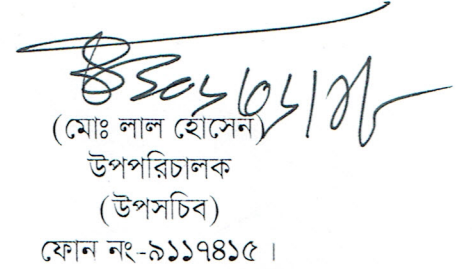 (মোঃ লাল হোসেন)
উপপরিচালক
(উপসচিব)
ফোন নং-৯১১৭৪১৫ ।